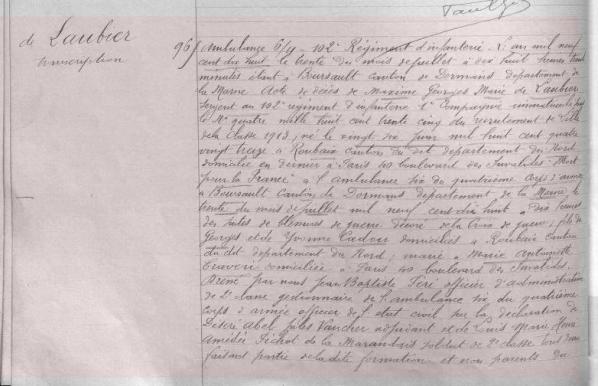 de Laubier
transcription
96/ Ambulance 6/4 - 102e Régiment d'infanterie L'an mil neuf
cent dix huit le trente du mois de juillet à dix huit heures trente
minutes étant à Boursault canton de Dormans département de
la Marne Acte de décès de Maxime Georges Marie de Laubier
sergent au 102e régiment d'infanterie 1e Compagnie immatriculé
le No quatre mille huit cent trente cinq du recrutement de Lille
de la classe 1913, né le vingt dix juin mil huit cent quatre
vingt treize à Roubaix canton du dit département du Nord
domicilié en dernier à Paris 40 boulevard des Invalides "Mort
pour la France" à l'ambulance six du quatrième corps d'armée
à Boursault Canton de Dormans département de la Marne le
trente du mois de juillet mil neuf cent dix huit à dix heures
des suites de blessures de guerre décoré de la Croix de guerre, fils de
Georges et de Yvonne Cadou domiciliés à Roubaix Canton
du dit département du Nord, marié à Marie Antoinette
domiciliée à Paris 40 boulevard des Invalides.
Dressé par nous Jean Baptiste officier d'administration
de 2e classe gestionnaire de l'ambulance six du quatrième
corps d'armée officier de l'état civil sur la déclaration de
Désiré Abel Jules Vaucher adjudant et de Louis Marie Henri
Amédée Pichot de la Marandais soldat de 2e classe tous deux
faisant partie de la dite formation et non parents du